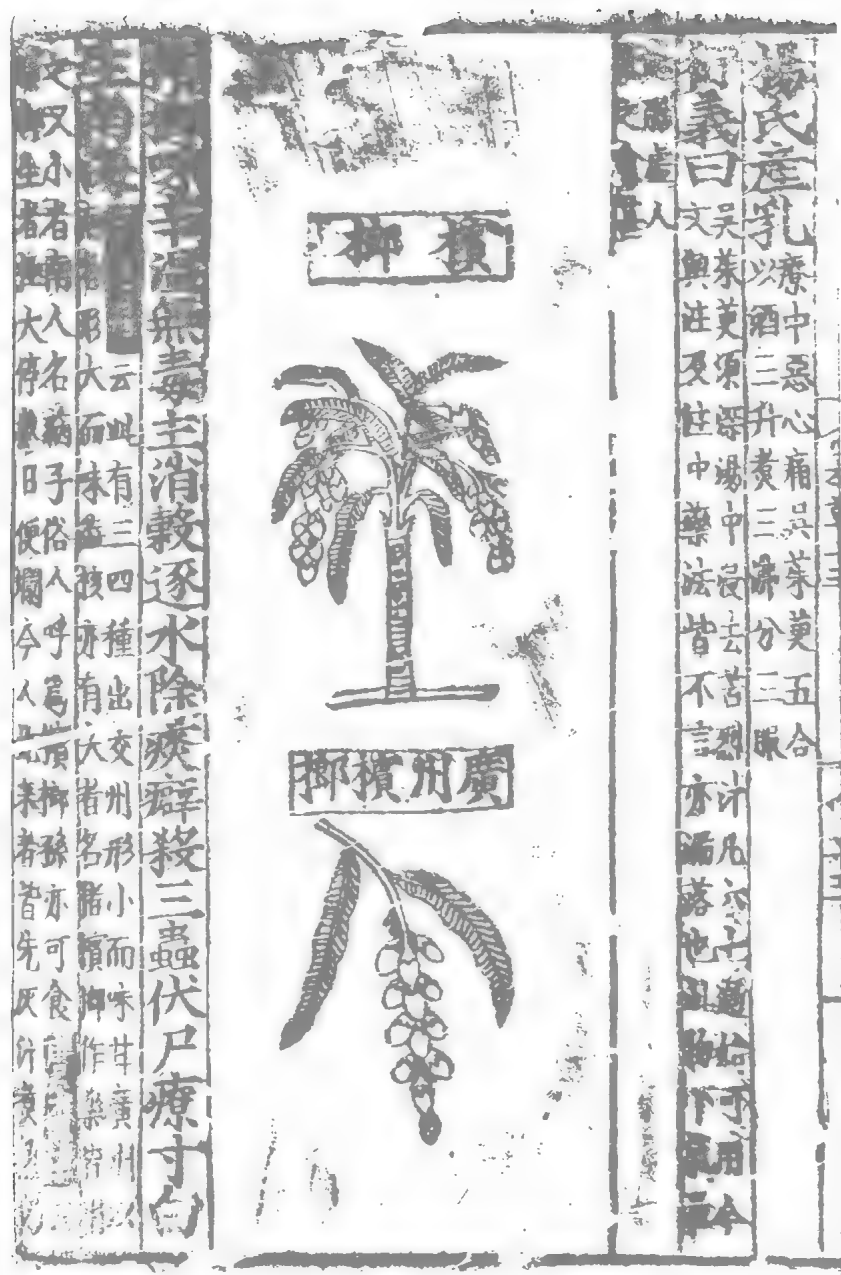 楊氏產乳療中惡心痛吳茱萸五合
以酒三升煮三沸分三服
衍義曰吳茱萸須深湯中浸去苦烈汁凡六七過始可用今
文與註及注中藥法皆不言亦漏落也此物下氣
腸虛人
檳榔
廣州檳榔
檳榔味辛溫無毒主消穀逐水除痰癖殺三蟲伏尸療寸白
云此有三四種出交州形小而味甘廣州以
南者形大而味澁核亦有大者名豬檳榔作藥皆
又小者南人名蒳子俗人呼為檳榔孫亦可食
生者極大停數日便爛今人來者皆先灰汁煮